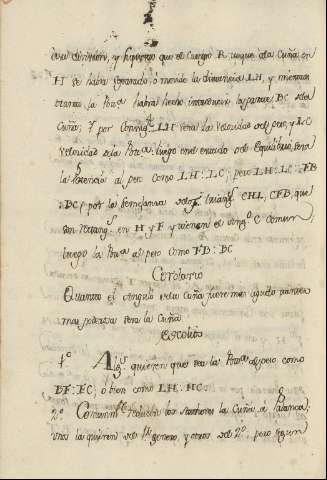 esta division, y supuesto que el Cuerpo R cargue dela Cuña; en
H se habra separado, ó movido la distancia LH, y mientras
tanto la Pot.ª habra hecho internar la parte BC dela
Cuña; Y por Consig.te LH sera la Velocidad del peso, y LC
Velocidad dela Pot.ª; luego en el estado de Equilibrio, sera
la Potencia al peso como LH : LC; pero LH : LC :: FB
: BC (por la semejanza delos triang.s CHL, CFB, que
son Rectang.s en H y F y tienen el ang.º C comun;
luego la Pot.ª al peso como FB : BC
Corolario
Quanto el Angulo dela Cuña fuere mas agudo tanto
mas potente sera la Cuña
Escolio
1º Alg.s quieren que sea la Pot.ª al peso como
BF : FC; ó bien como LH : HC
2º Comunm.te reducen los Authores la Cuña, a Palanca;
unos la quieren del 1.º genero, y otros del 2º; pero segun